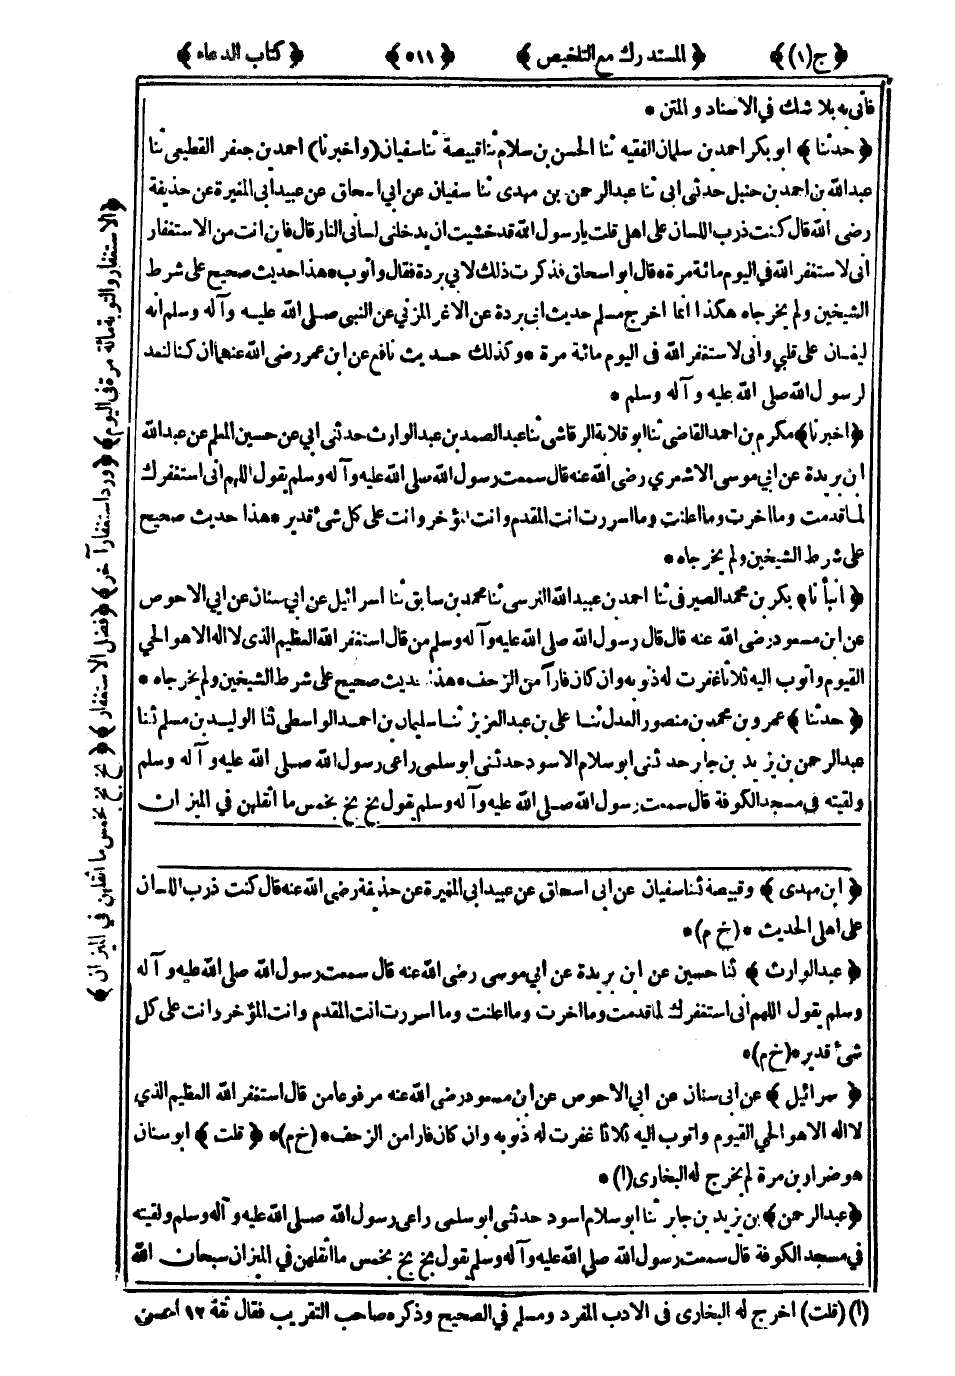 ﴿ ج(١) ﴾ ﴿ المستدرك مع التلخيص ﴾ ﴿ ٥١١ ﴾ ﴿ كتاب الدعاء ﴾
فأتى به بلا شك فى الاسناد و المتن *
﴿ حدثنا ﴾ ابو بكر احمد بن سلمان الفقيه ثنا الحسن بن سلام ثنا قبيصة ثنا سفيان (واخبرنا) احمد بن جعفر القطيعى ثنا
عبدالله بن احمد بن حنبل حدثنى ابى ثنا عبدالرحمن بن مهدى ثنا سفيان عن ابى اسحاق عن عبيد ابى المغيرة عن حذيفة
رضى الله قال كنت ذرب اللسان على اهلى قلت يا رسول الله قد خشيت ان يدخلنى لسانى النار قال فاين انت من الاستغفار
انى لاستغفر الله فى اليوم مائة مرة * قال ابو اسحاق فذكرت ذلك لابى بردة فقال واتوب * هذا حديث صحيح على شرط
الشيخين ولم يخرجاه هكذا انما اخرج مسلم حديث ابى بردة عن الاغر المزنى عن النبى صلى الله عليه وآله وسلم انه
ليغان على قلبى وانى لاستغفر الله فى اليوم مائة مرة * وكذلك حديث نافع عن ابن عمر رضى الله عنهما ان كنا لنعد
لرسول الله صلى الله عليه وآله وسلم *
﴿اخبرنا﴾ مكرم بن احمد القاضى ثنا ابو قلابة الرقاشى ثنا عبدالصمد بن عبدالوارث حدثنى ابى عن حسين المعلم عن عبدالله
ابن بريدة عن ابى موسى الاشعرى رضى الله عنه قال سمعت رسول الله صلى الله عليه وآله وسلم يقول اللهم انى استغفرك
لما قدمت وما اخرت وما اعلنت وما اسررت انت المقدم وانت المؤخر وانت على كل شىء قدير * هذا حديث صحيح
على شرط الشيخين ولم يخرجاه *
﴿ انبأنا﴾ بكر بن محمد الصيرفى ثنا احمد بن عبيد الله النرسى ثنا محمد بن سابق ثنا اسرائيل عن ابى سنان عن ابى الاحوص
عن ابن مسعود رضى الله عنه قال قال رسول الله صلى الله عليه وآله وسلم من قال استغفر الله العظيم الذى لا اله الا هو الحى
القيوم واتوب اليه ثلاثا غفرت له ذنوبه وان كان فارا من الزحف * هذا حديث صحيح على شرط الشيخين ولم يخرجاه *
﴿ حدثنا ﴾ عمرو بن محمد بن منصور العدل ثنا على بن عبدالعزيز ثنا سليمان بن احمد الواسطى ثنا الوليد بن مسلم ثنا
عبدالرحمن بن يزيد بن جابر حدثنى ابو سلام الاسود حدثنى ابو سلمى راعى رسول الله صلى الله عليه وآله وسلم
ولقيته فى مسجد الكوفة قال سمعت رسول الله صلى الله عليه وآله وسلم يقول بخ بخ بخمس ما اثقلهن فى الميزان
﴿ ابن مهدى ﴾ وقبيصة ثنا سفيان عن ابى اسحاق عن عبيد ابى المغيرة عن حذيفة رضى الله عنه قال كنت ذرب اللسان
على اهلى الحديث * (خ م) *
﴿ عبدالوارث ﴾ ثنا حسين عن ابن بريدة عن ابى موسى رضى الله عنه قال سمعت رسول الله صلى الله عليه وآله
وسلم يقول اللهم انى استغفرك لما قدمت وما اخرت وما اعلنت وما اسررت انت المقدم وانت المؤخر وانت على كل
شىء قدير * (خ م) *
﴿ سرائيل ﴾ عن ابى سنان عن ابى الاحوص عن ابن مسعود رضى الله عنه مرفوعا من قال استغفر الله العظيم الذى
لا اله الا هو الحى القيوم واتوب اليه ثلاثا غفرت له ذنوبه وان كان فارا من الزحف * (خ م) * ﴿ قلت ﴾ ابو سنان
هو ضرار بن مرة لم يخرج له البخارى (١) *
﴿عبدالرحمن﴾ بن يزيد بن جابر ثنا ابو سلام اسود حدثنى ابو سلمى راعى رسول الله صلى الله عليه وآله وسلم ولقيته
فى مسجد الكوفة قال سمعت رسول الله صلى الله عليه وآله وسلم يقول بخ بخ بخمس ما اثقلهن فى الميزان سبحان الله
(١) (قلت) اخرج له البخارى فى الادب المفرد ومسلم فى الصحيح وذكره صاحب التقريب فقال ثقة ١٢
﴿الاستغفار والتوبة مائة مرة فى اليوم﴾ ﴿ورد استغفار آخر﴾ ﴿فضل الاستغفار﴾ ﴿بخ بخ بخمس ما اثقلهن فى الميزان﴾